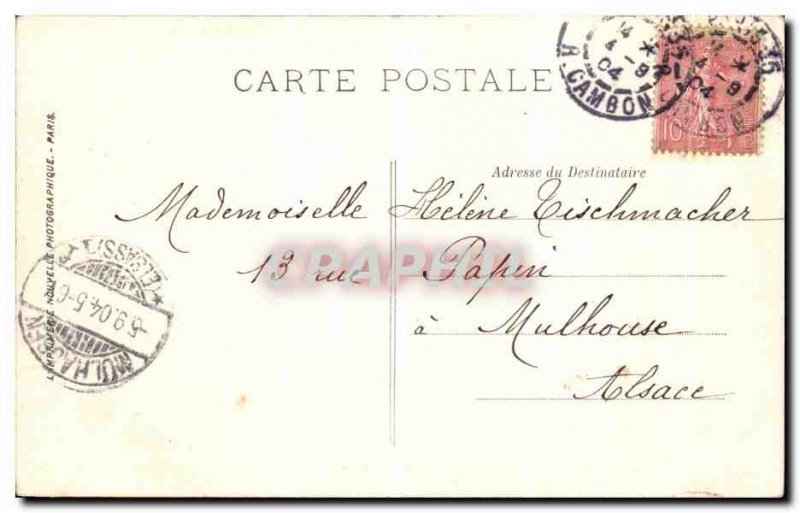 CARTE POSTALE
R. CAMBON
4 - 9
04
10
Adresse du Destinataire
Mademoiselle Hélène Tischmacher
13 rue Papin
à Mulhouse
Alsace
L'IMPRIMERIE NOUVELLE PHOTOGRAPHIQUE. - PARIS.
MÜLHAUSEN
5.9.04.5-6
(ELSASS) 1